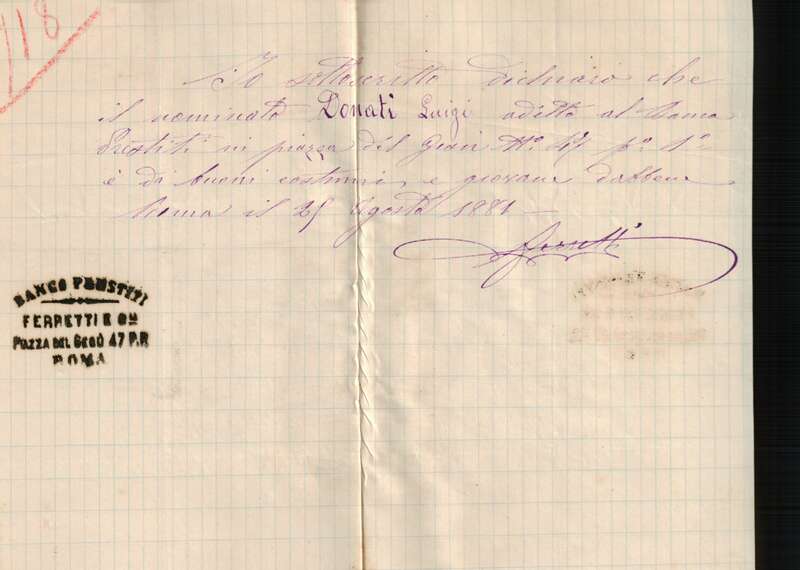 118
Io sottoscritto dichiaro che
il nominato Donati Luigi adetto al Banco
Prestiti in piazza del Gesù N.º 47 p.º 1.º
è di buoni costumi, e giovane dabbene
Roma il 25 Agosto 1881
Ferretti
BANCO PRESTITI
FERRETTI E Cº
PIAZZA DEL GESÙ 47 P.P.
ROMA